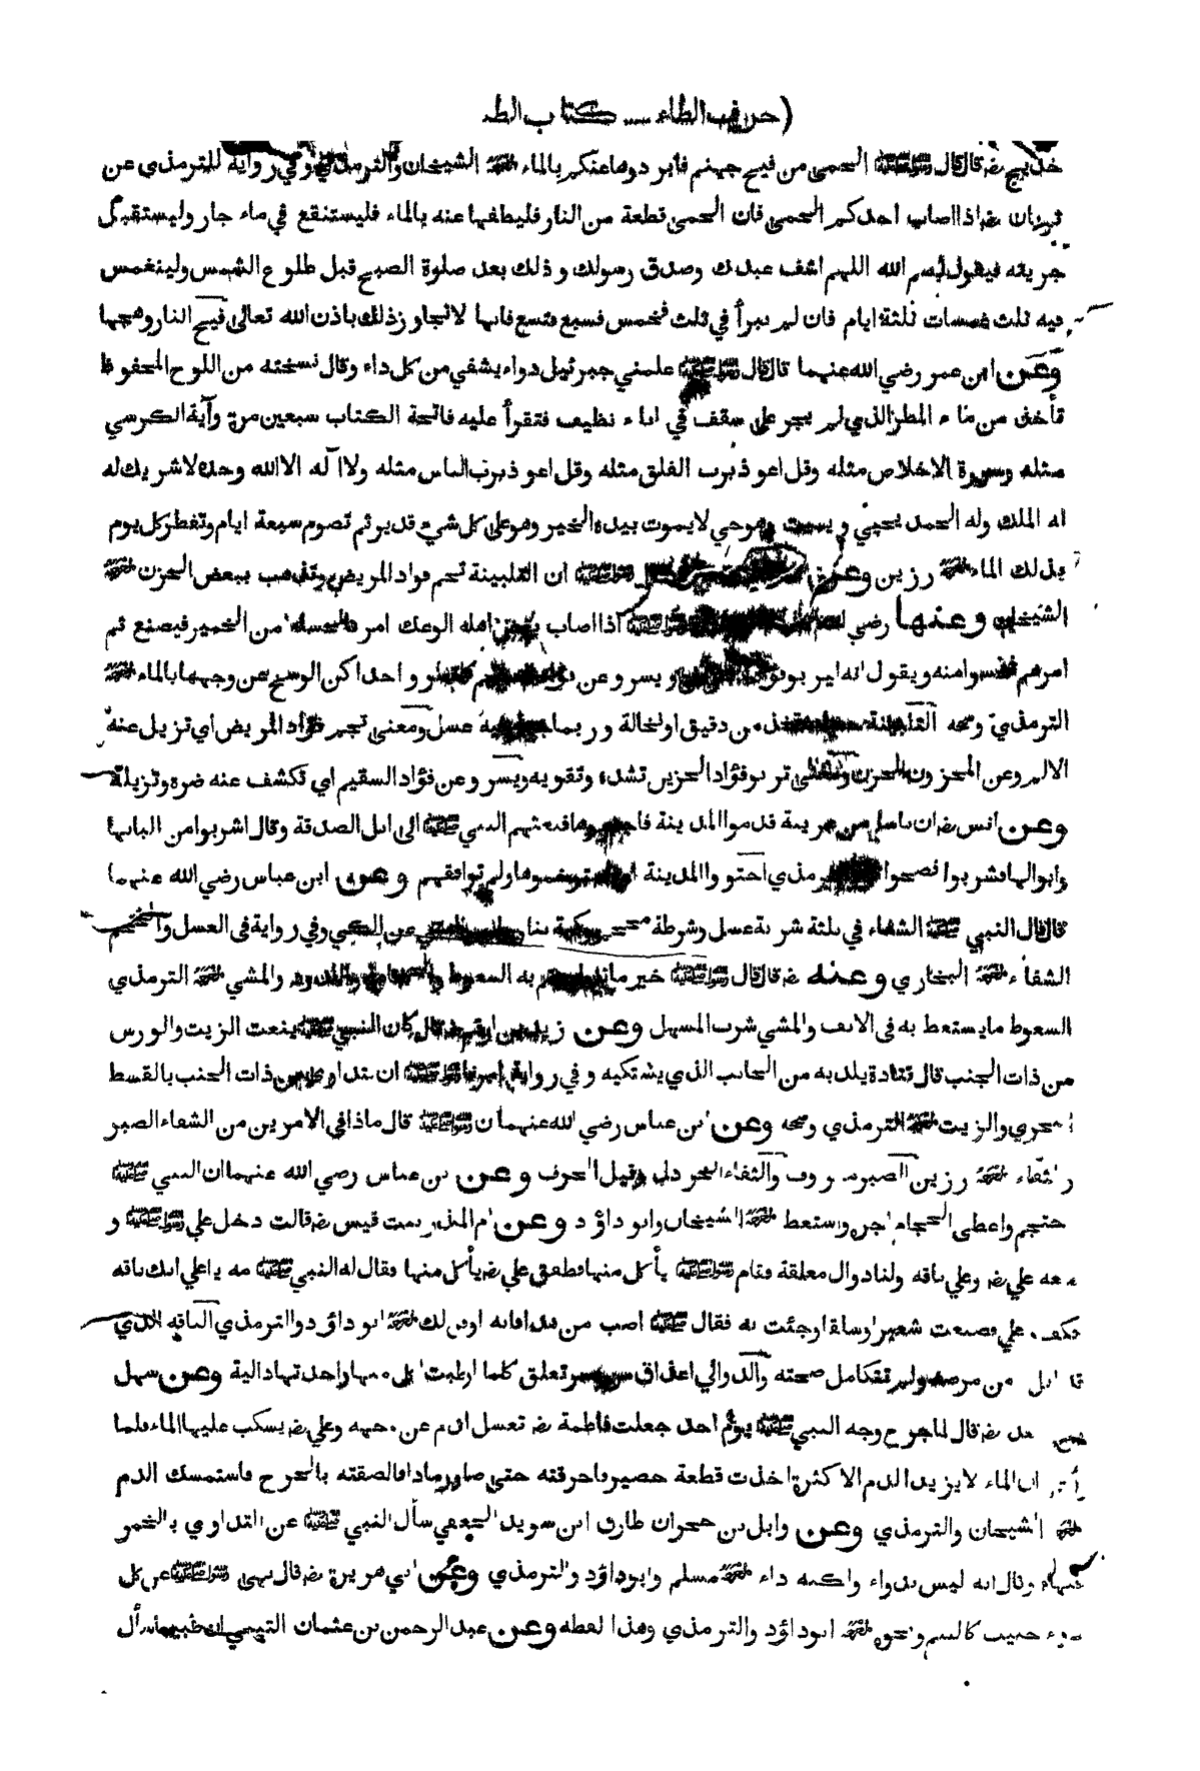 (حرف الطاء ... كتاب الط
خديج رضـ قال قال رسول الله ﷺ الحمى من فيح جهنم فابردوها عنكم بالماء اخرجه الشيخان والترمذي وفي رواية للترمذي عن
ثوبان رضـ اذا اصاب احدكم الحمى فان الحمى قطعة من النار فليطفها عنه بالماء فليستنقع في ماء جار وليستقبل
جريته فيقول بسم الله اللهم اشف عبدك وصدق رسولك وذلك بعد صلوة الصبح قبل طلوع الشمس ولينغمس
فيه ثلث غمسات ثلثة ايام فان لم يبرأ في ثلث فخمس فسبع فتسع فانها لا تجاوز ذلك باذن الله تعالى فيح النار وهجها
وعن ابن عمر رضي الله عنهما قال قال رسول الله ﷺ علمني جبرئيل دواء يشفي من كل داء وقال نسخته من اللوح المحفوظ
تأخذ من ماء المطر الذي لم يجر على سقف في اناء نظيف فتقرأ عليه فاتحة الكتاب سبعين مرة وآية الكرسي
مثله وسورة الاخلاص مثله وقل اعوذ برب الفلق مثله وقل اعوذ برب الناس مثله ولا اله الا الله وحده لا شريك له
له الملك وله الحمد يحيي ويميت وهو حي لا يموت بيده الخير وهو على كل شيء قدير ثم تصوم سبعة ايام وتفطر كل يوم
بذلك الماء اخرجه رزين وعن رسول الله ﷺ ان التلبينة تجم فواد المريض وتذهب ببعض الحزن اخرجه
الشيخان وعنها رضي اذا اصاب اهله الوعك امر بالحساء من الخمير فيصنع ثم
امرهم فحسوا منه ويقول انه ليرتو ويسرو عن احداكن الوسخ عن وجهها بالماء اخرجه
الترمذي وصحه التلبينة تتخذ من دقيق او نخالة وربما عسل ومعنى تجم فؤاد المريض اي تزيل عنه
الالم وعن المحزون الحزن ومعنى ترتو فؤاد الحزين تشده وتقويه ويسرو عن فؤاد السقيم اي تكشف عنه ضره وتزيله
وعن انس رضـ ان ناسا من عرينة قدموا المدينة فاجتووها فبعثهم النبي ﷺ الى ابل الصدقة وقال اشربوا من البانها
وابوالها فشربوا فصحوا الترمذي اجتووا المدينة ولم توافقهم وعن ابن عباس رضي الله عنهما
قال قال النبي ﷺ الشفاء في ثلثة شربة عسل وشرطة محجم وكية نار عن الكي وفي رواية في العسل والحجم
الشفاء اخرجه البخاري وعنه رضـ قال قال رسول الله ﷺ خير ما به السعوط والمشي اخرجه الترمذي
السعوط ما يستعط به في الانف والمشي شرب المسهل وعن زيد بن ارقم رضـ قال كان النبي ﷺ ينعت الزيت والورس
من ذات الجنب قال قتادة يلد به من الجانب الذي يشتكيه وفي رواية امرنا رسول الله ﷺ ان نتداوى من ذات الجنب بالقسط
البحري والزيت اخرجه الترمذي وصحه وعن ابن عباس رضي الله عنهما ان رسول الله ﷺ قال ماذا في الامرين من الشفاء الصبر
والثفاء اخرجه رزين الصبر معروف والثفاء الخردل وقيل الحرف وعن ابن عباس رضي الله عنهما ان النبي ﷺ
احتجم واعطى الحجام اجره واستعط اخرجه الشيخان وابو داؤد وعن ام المنذر بنت قيس رضـ قالت دخل علي رسول الله ﷺ و
معه علي رضـ وعلي ناقه ولنا دوال معلقة فقام رسول الله ﷺ يأكل منها فطفق علي رضـ يأكل منها فقال له النبي ﷺ مه يا علي انك ناقه
فكف علي فصنعت شعيرا وسلقا وجئت به فقال ﷺ اصب من هذا فانه اوفق لك اخرجه ابو داؤد والترمذي الناقه الذي
قد ابل من مرضه ولم تتكامل صحته والدوالي اعذاق تعلق كلما ارطبت اكل منها واحدتها دالية وعن سهل
بن سعد رضـ قال لما جرح وجه النبي ﷺ يوم احد جعلت فاطمة رضـ تغسل الدم عن وجهه وعلي رضـ يسكب عليها الماء فلما
رأت ان الماء لا يزيد الدم الا كثرة اخذت قطعة حصير فاحرقته حتى صار رمادا فالصقته بالجرح فاستمسك الدم
اخرجه الشيخان والترمذي وعن وابل بن حجر ان طارق ابن سويد الجعفي سأل النبي ﷺ عن التداوي بالخمر
فنهاه وقال انه ليس بدواء ولكنه داء اخرجه مسلم وابو داؤد والترمذي وعن ابي هريرة رضـ قال نهى رسول الله ﷺ عن كل
دواء خبيث كالسم ونحوه اخرجه ابو داؤد والترمذي وهذا لفظه وعن عبد الرحمن بن عثمان التيمي ان طبيبا سأل